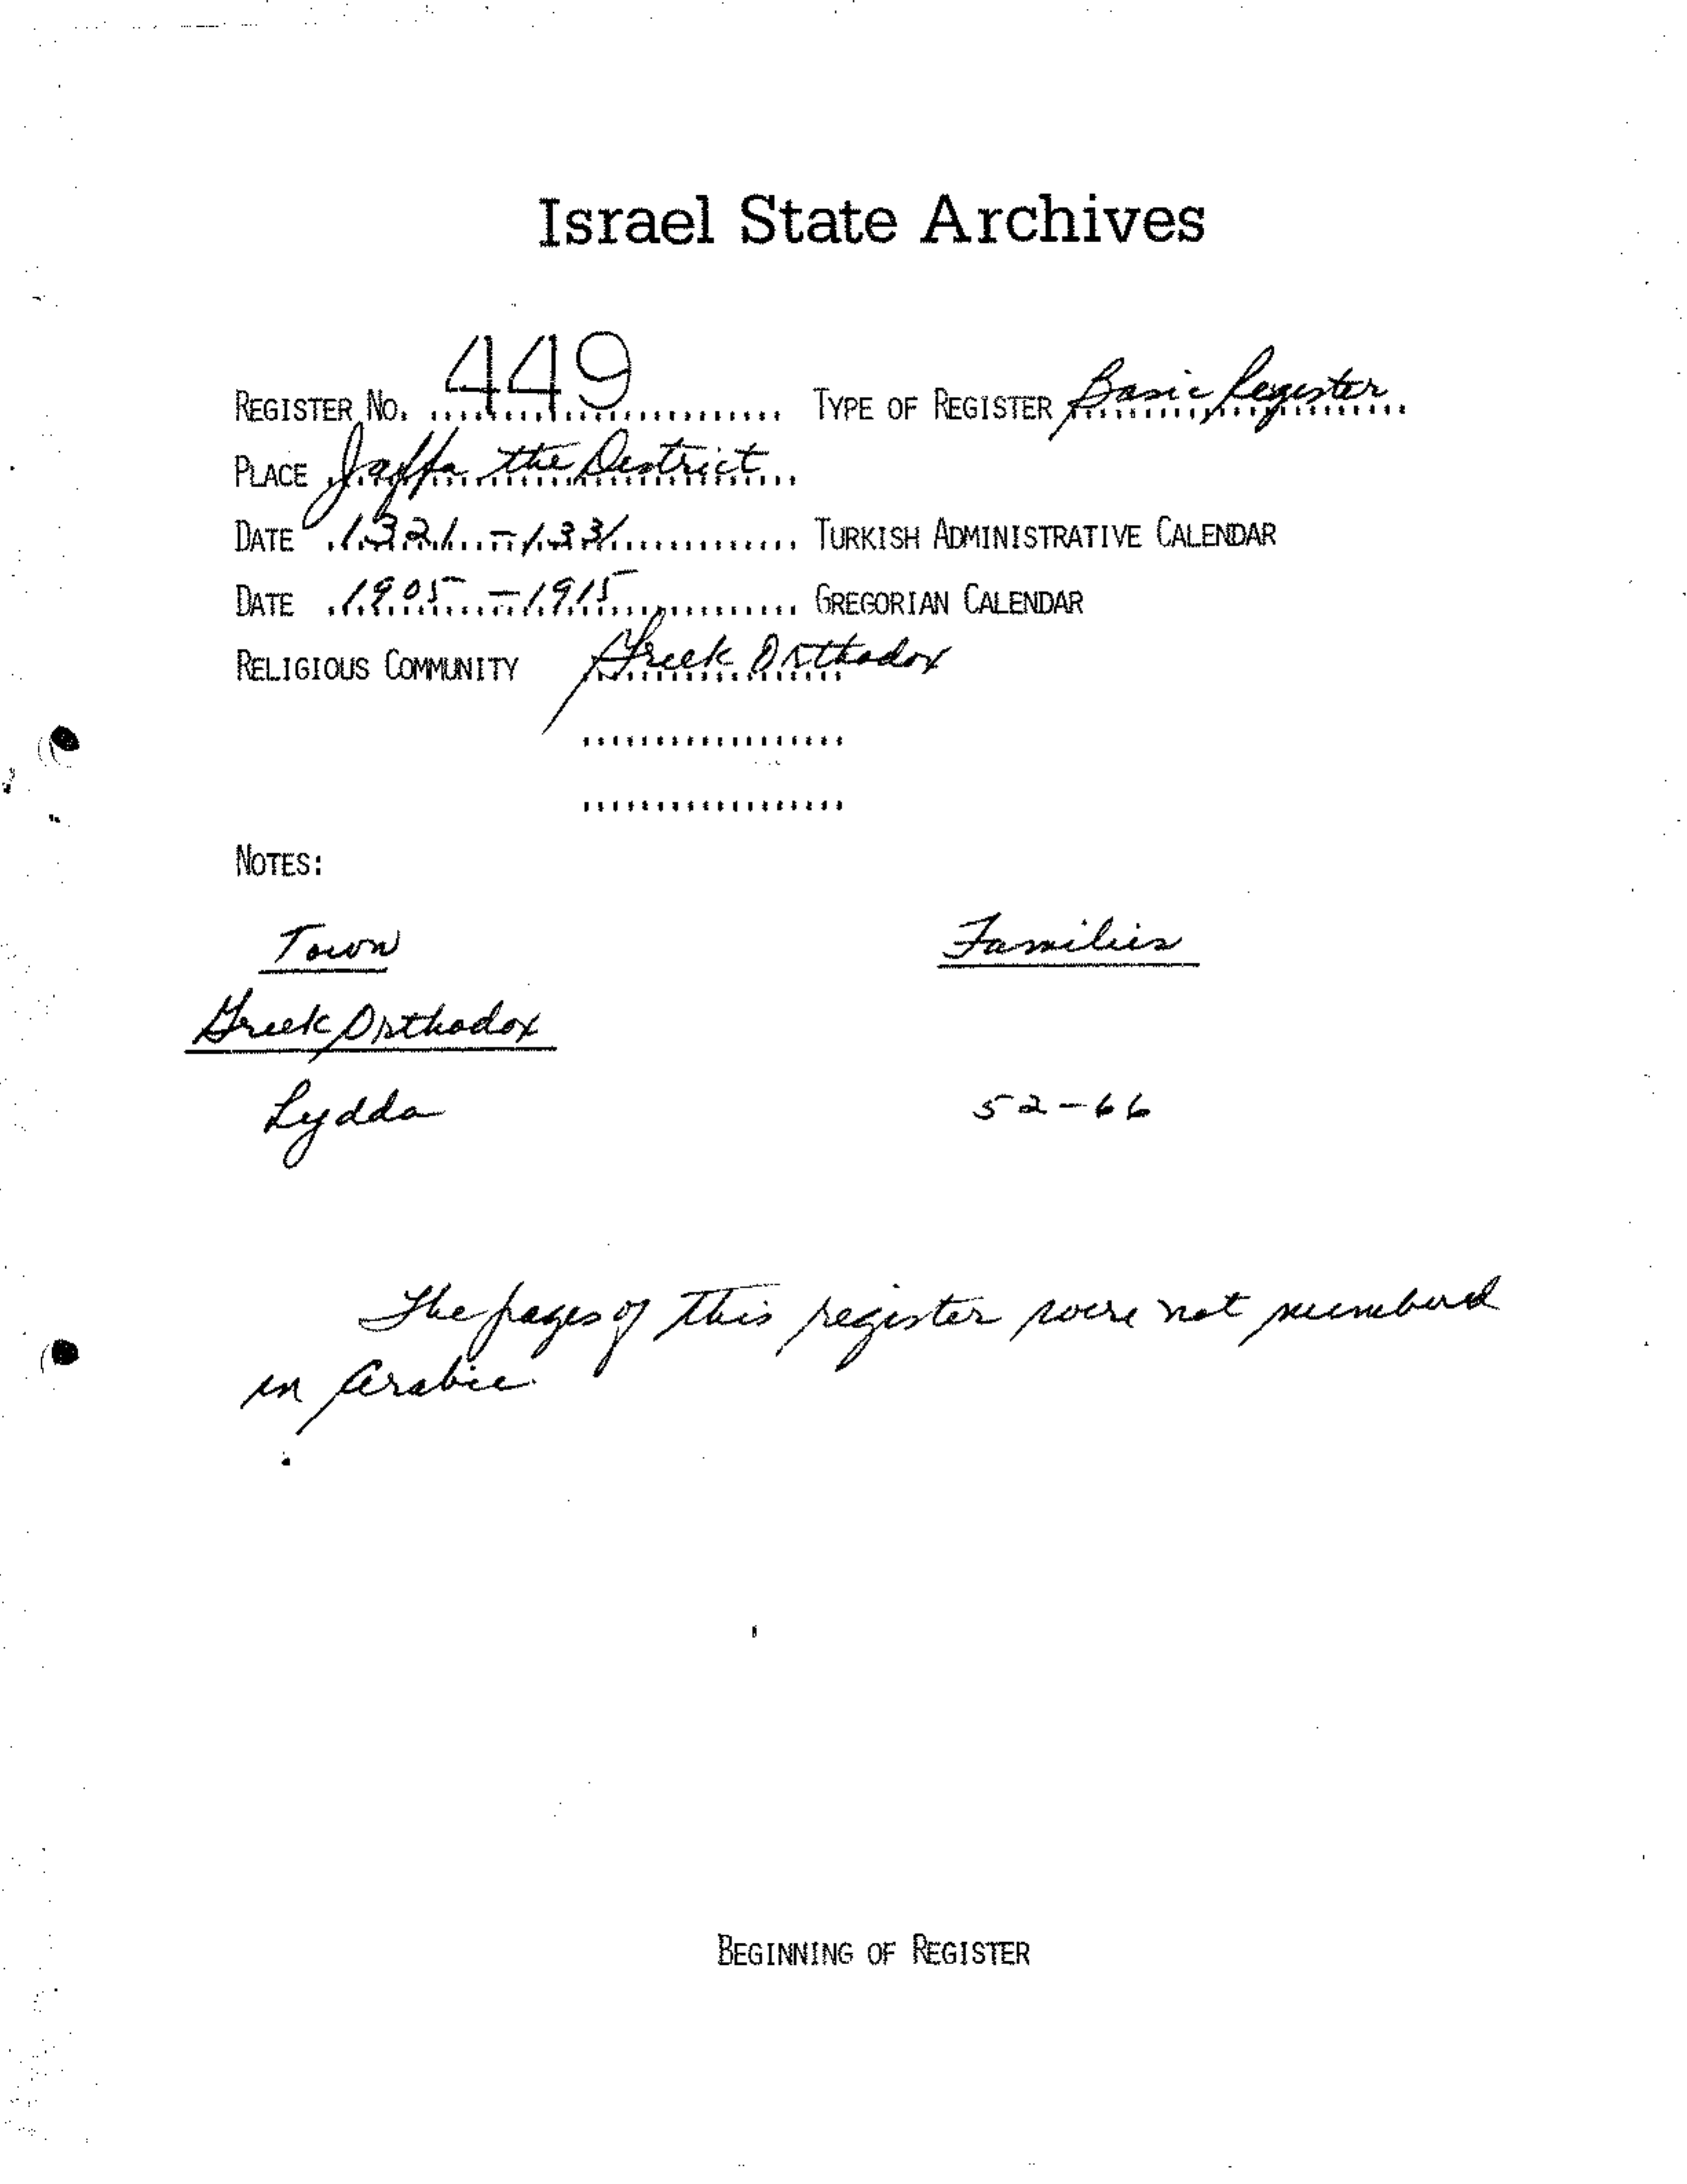 Israel State Archives
REGISTER NO. 449 TYPE OF REGISTER Basic Register
PLACE Jaffa the District
DATE 1321 - 1331 TURKISH ADMINISTRATIVE CALENDAR
DATE 1905 - 1915 GREGORIAN CALENDAR
RELIGIOUS COMMUNITY Greek Orthodox
NOTES:
Town Families
Greek Orthodox
Lydda 52-66
The pages of this register were not numberd
in Arabic.
BEGINNING OF REGISTER